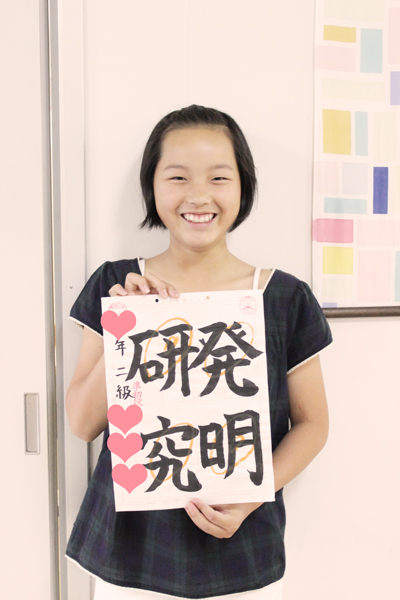 発明
研究
年二級